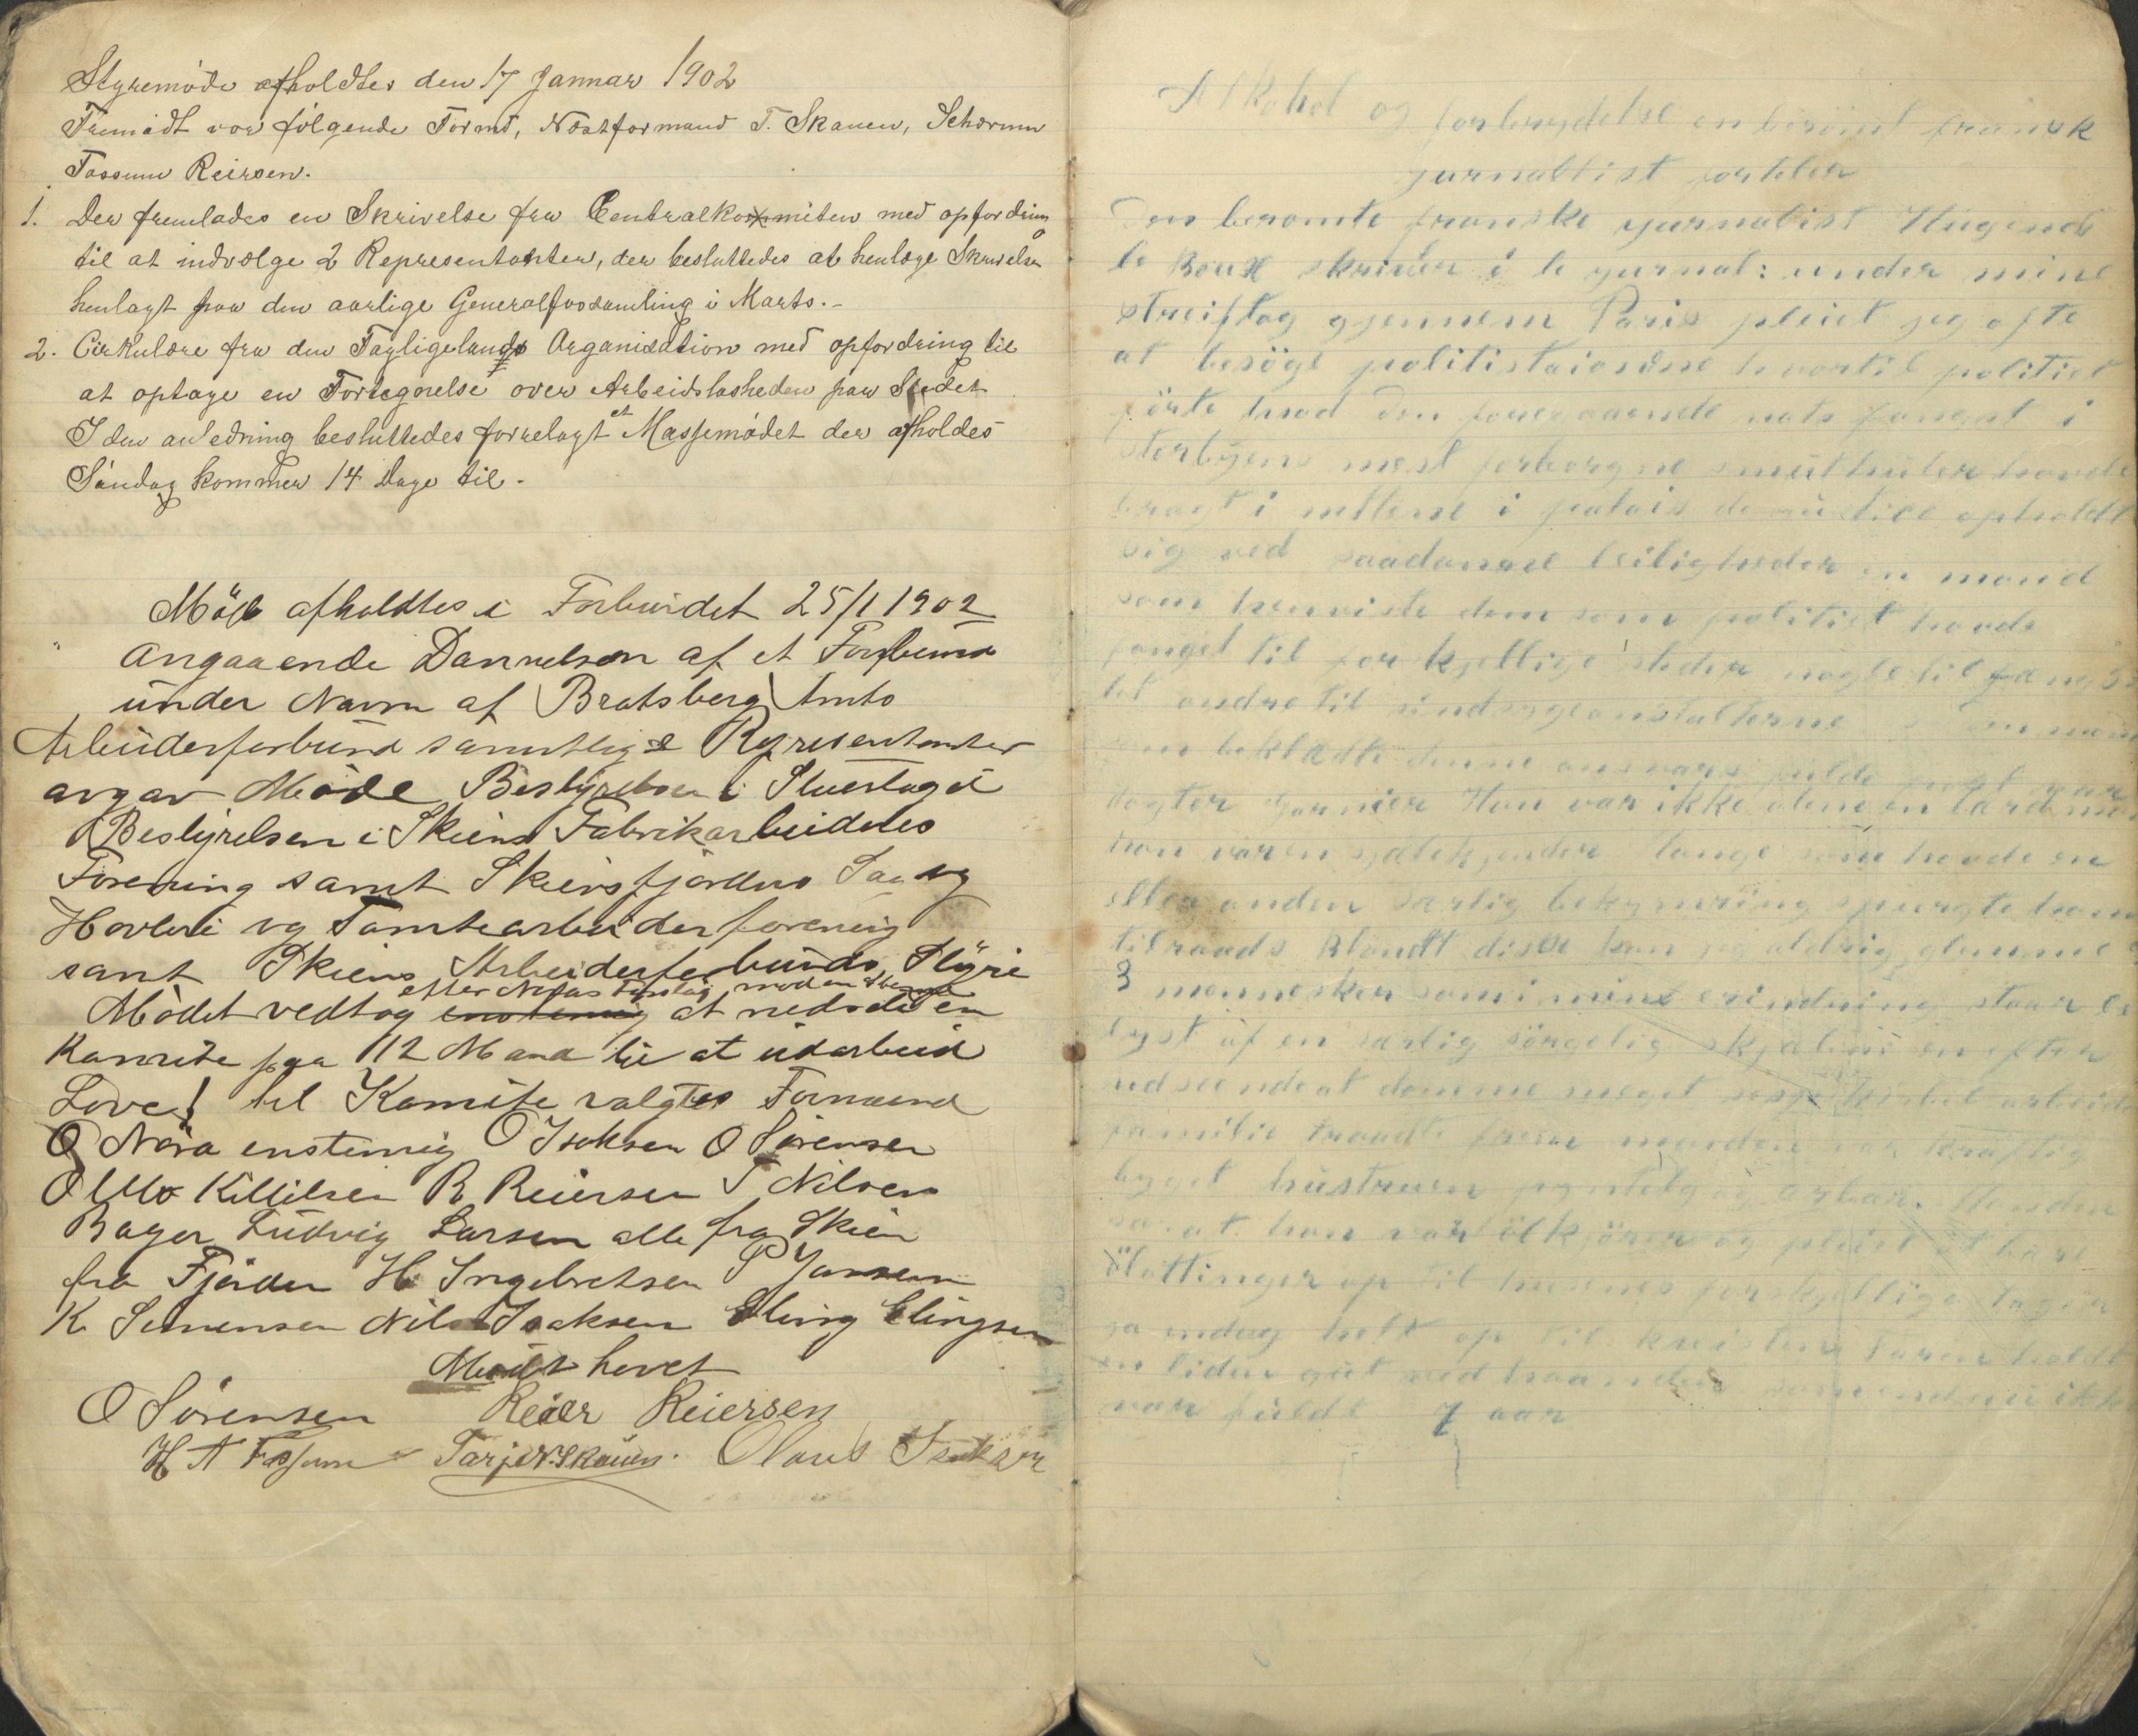 Styremöde afholdtes den 17 Januar 1902
Fremödt var fölgende Formd, Næstformand T. Skauen,
Fossum Reirsen.
1. Der fremlades en Skrivelse fra Centralkomiteen med opfordring
til at indvælge 2 Representanter, der besluttedes at henlæge Skrivelsen
henlagt paa den aarlige Generalforsamling i Marts.-
2. Cirkulære fra den Fagligelands Organisation med opfordring til
at optage en Fortegnelse over Arbeidslösheden paa Stedet
I den anledning besluttedes forrelagt et Massemödet der afholdes
Söndag kommer 14 Dage til.
Möde afholdtes i Forbundet 25/1 1902
Angaaende Dannelsen af et Forbund
under Navn af Bratsberg Amts
Arbeiderforbund samtlige Representanter
Möde Bestyrelsen i
Bestyrelsen i Skiens Fabrikarbeideres
Forening samt Skiensfjordens Sag og
Hövleri og Tomtearbeiderforening
samt Skiens Arbeiderforbunds Styre
efter Nöras Forslag mod en Stemme
Mödet vedtog enstemig at nedsætte en
Komite paa 12 Mand til at udarbeid
Love! til Komite valgtes Formand
O Nöra enstemig O Isaksen O Sörensen
Kittilsen R Reiersen T Nilsen
Bager Ludvig Larsen alle fra Skien
fra Fjorden H Ingebretsen P Jansen
K Simensen Nils Isaksen Elling Elingsen
Mödet hævet
O Sörensen Reier Reiersen
H A Fossum Tarjei N. Skauen. Olaus Isaksen
Alkohol og forbrydelse en berömt fransk
jurnallist forteler
Den berømte franske jurnalist Hugende
le Roux skriver i le jurnal: under mine
streiftog gjennem Paris pleiet jeg ofte
at besöge politistasionene hvortil politiet
förte hvad den foregaaende nats fangst i
storbyens mest forborgne smuthuler havde
bragt i nettene i palais de justice opholdt
sig ved saadanne leiligheder en mand
som henviste dem som politiet havde
fanget til forskjellige steder nogle til fængs
let andre til sindsygeanstalterne
som beklædte denne ansvars fulde post var
dogter Garnier Han var ikke alene en lærd man
han var en sjælekjender længe som havde en
eller anden særlig bekymring spurgte ham
tilraads Blandt disse kan jeg aldrig glemme
3 mennesker som i mine erindring staar be
lyst af en særlig sörgelig skjæbne en efter
udseende at dømme meget arbeider
familie traadte frem manden var kraftig
byget hustruen og Manden
sa at han var ölkjörer og pleiet at bære
öllottinger op til husenes forskjellige etager
ja endog helt op til kvisten Faren holdt
en liden gut ved haanden som endnu ikke
var fuldt 7 aar